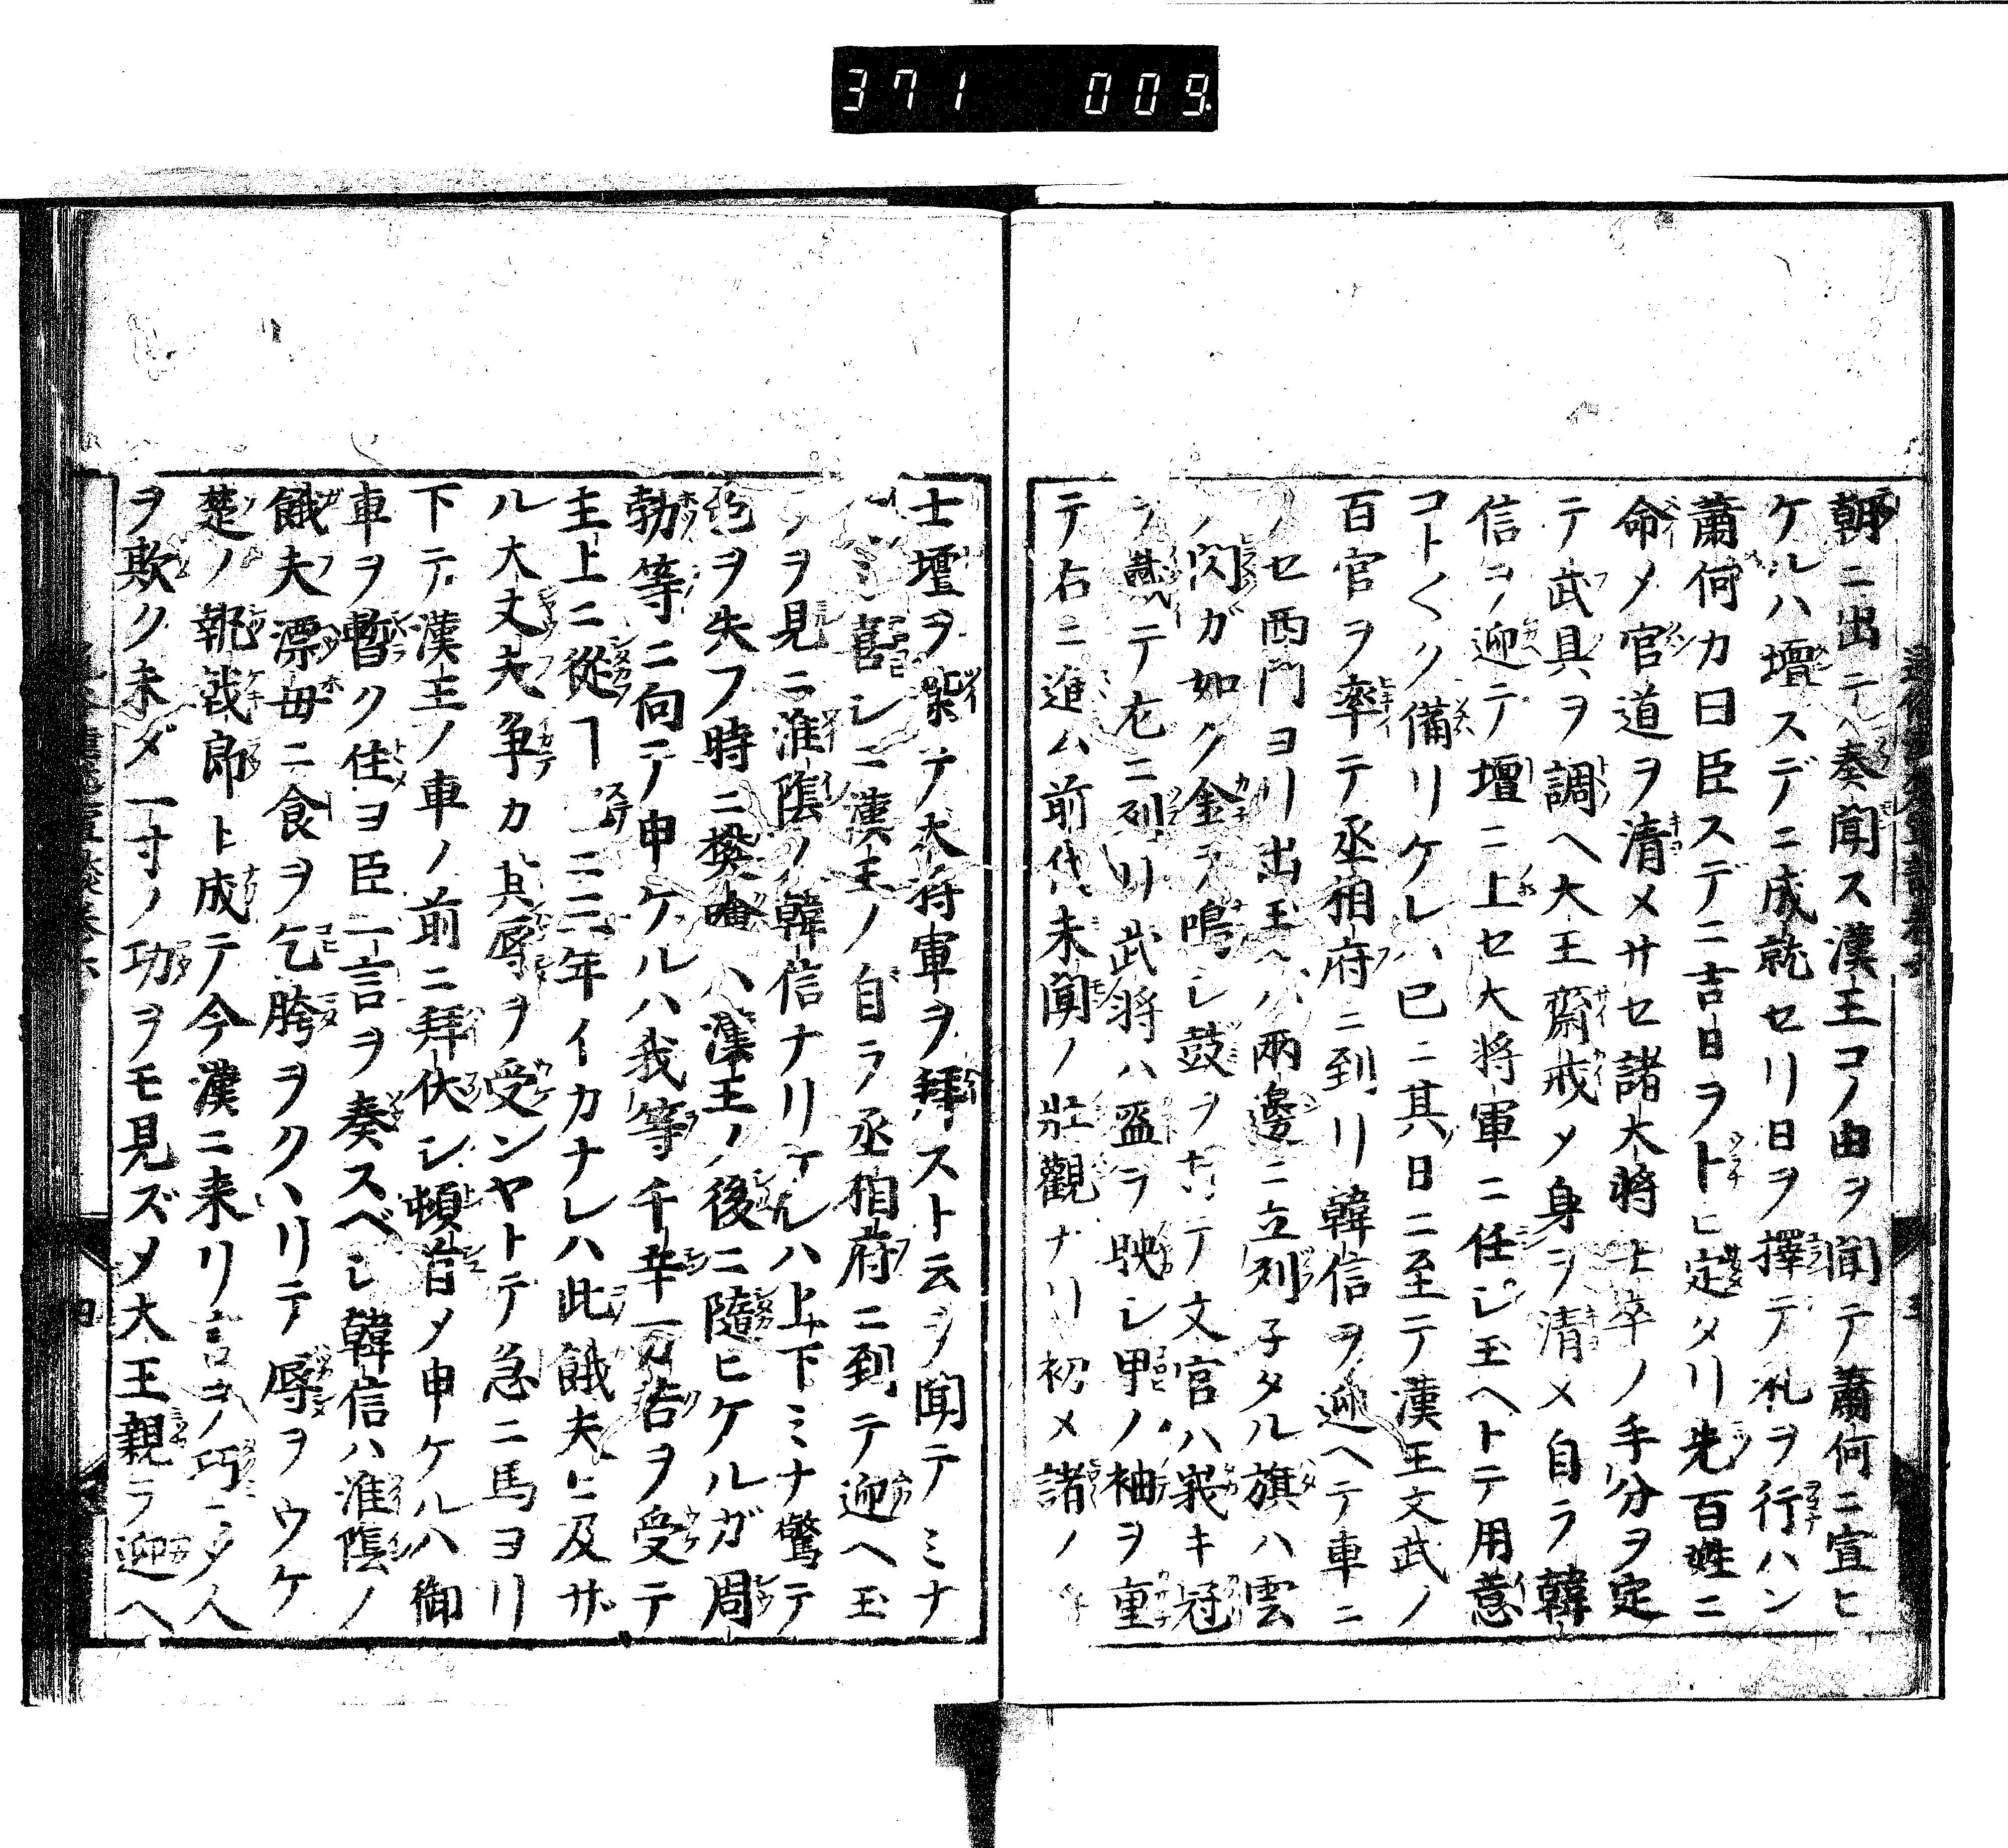 371 009
朝ニ出テ奏聞ス漢王コノ由ヲ聞テ蕭何ニ宣ヒ
ケルハ壇スデニ成就セリ日ヲ擇テ礼ヲ行ハン
蕭何カ曰臣スデニ吉日ヲトヒ定タリ先百姓ニ
命メ官道ヲ清メサセ諸大將士卒ノ手分ヲ定
テ武具ヲ調ヘ大王齋戒メ身ヲ清メ自ラ韓
信ヲ迎テ壇ニ上セ大將軍ニ任シ玉ヘトテ用意
コト〱ク備リケレハ已ニ其日ニ至テ漢王文武ノ
百官ヲ率テ丞相府ニ到リ韓信ヲ迎ヘテ車ニ
ノセ西門ヨリ出玉ヘハ兩邊ニ立列子タル旗ハ雲
ノ閃ガ如ク金ヲ鳴シ鼓ヲ テ文官ハ峩キ冠
ヲ戴テ左ニ列リ武將ハ盔ヲ映シ甲ノ袖ヲ重
テ右ニ進ム前代未聞ノ壯觀ナリ初メ諸ノ
士壇ヲ築テ大将軍ヲ拜スト云ヲ聞テミナ
ミ喜シニ漢王ノ自ラ丞相府ニ到テ迎ヘ玉
フヲ見ニ淮陰ノ韓信ナリケルハ上下ミナ驚テ
色ヲ失フ時ニ樊噲ハ漢王ノ後ニ隨ヒケルガ周
勃等ニ向テ申ケルハ我等千辛万苦ヲ受テ
主上ニ從 ニ三年イカナレハ此餓夫ニ及ザ
ル大丈夫争カ其辱ヲ受ンヤトテ急ニ馬ヨリ
下テ漢王ノ車ノ前ニ拜伏シ頓首メ申ケルハ御
車ヲ暫ク住ヨ臣一言ヲ奏スベシ韓信ハ淮陰ノ
餓夫漂母ニ食ヲ乞胯ヲクヽリテ辱ヲウケ
楚ノ執戟郎ト成テ今漢ニ来リ言ヲ巧ニメ人
ヲ欺ク未ダ一寸ノ功ヲモ見ズメ大王親ラ迎ヘ